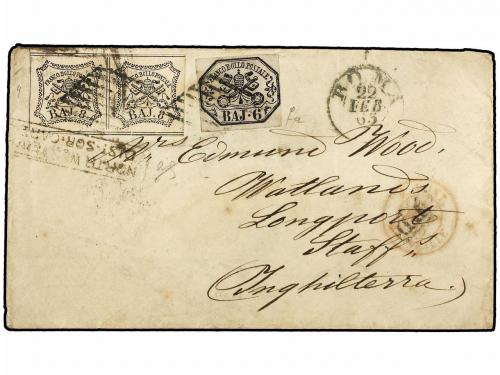 FRANCO BOLLO POSTALE
BAJ. 8
FRANCO BOLLO POSTALE
BAJ. 8
FRANCO BOLLO POSTALE
BAJ. 6
ROMA
22
FEB
65
Mrs Edmund Wood,
Watlands
Longport
Staffs
(Inghilterra.)